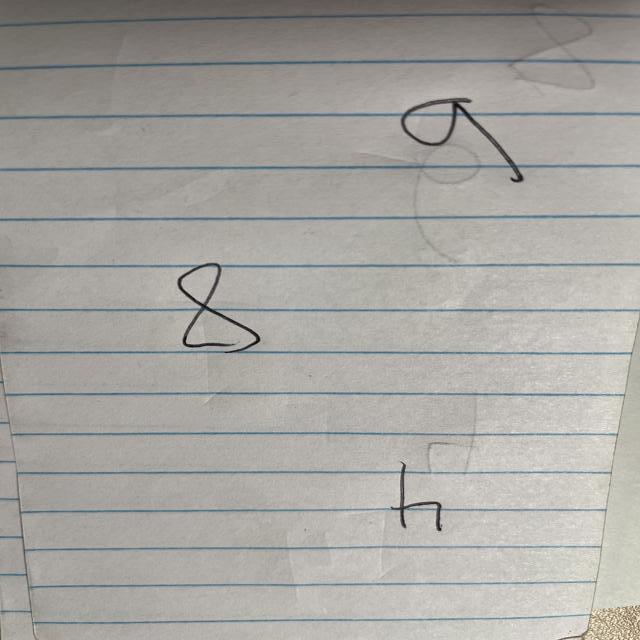 9
8
4